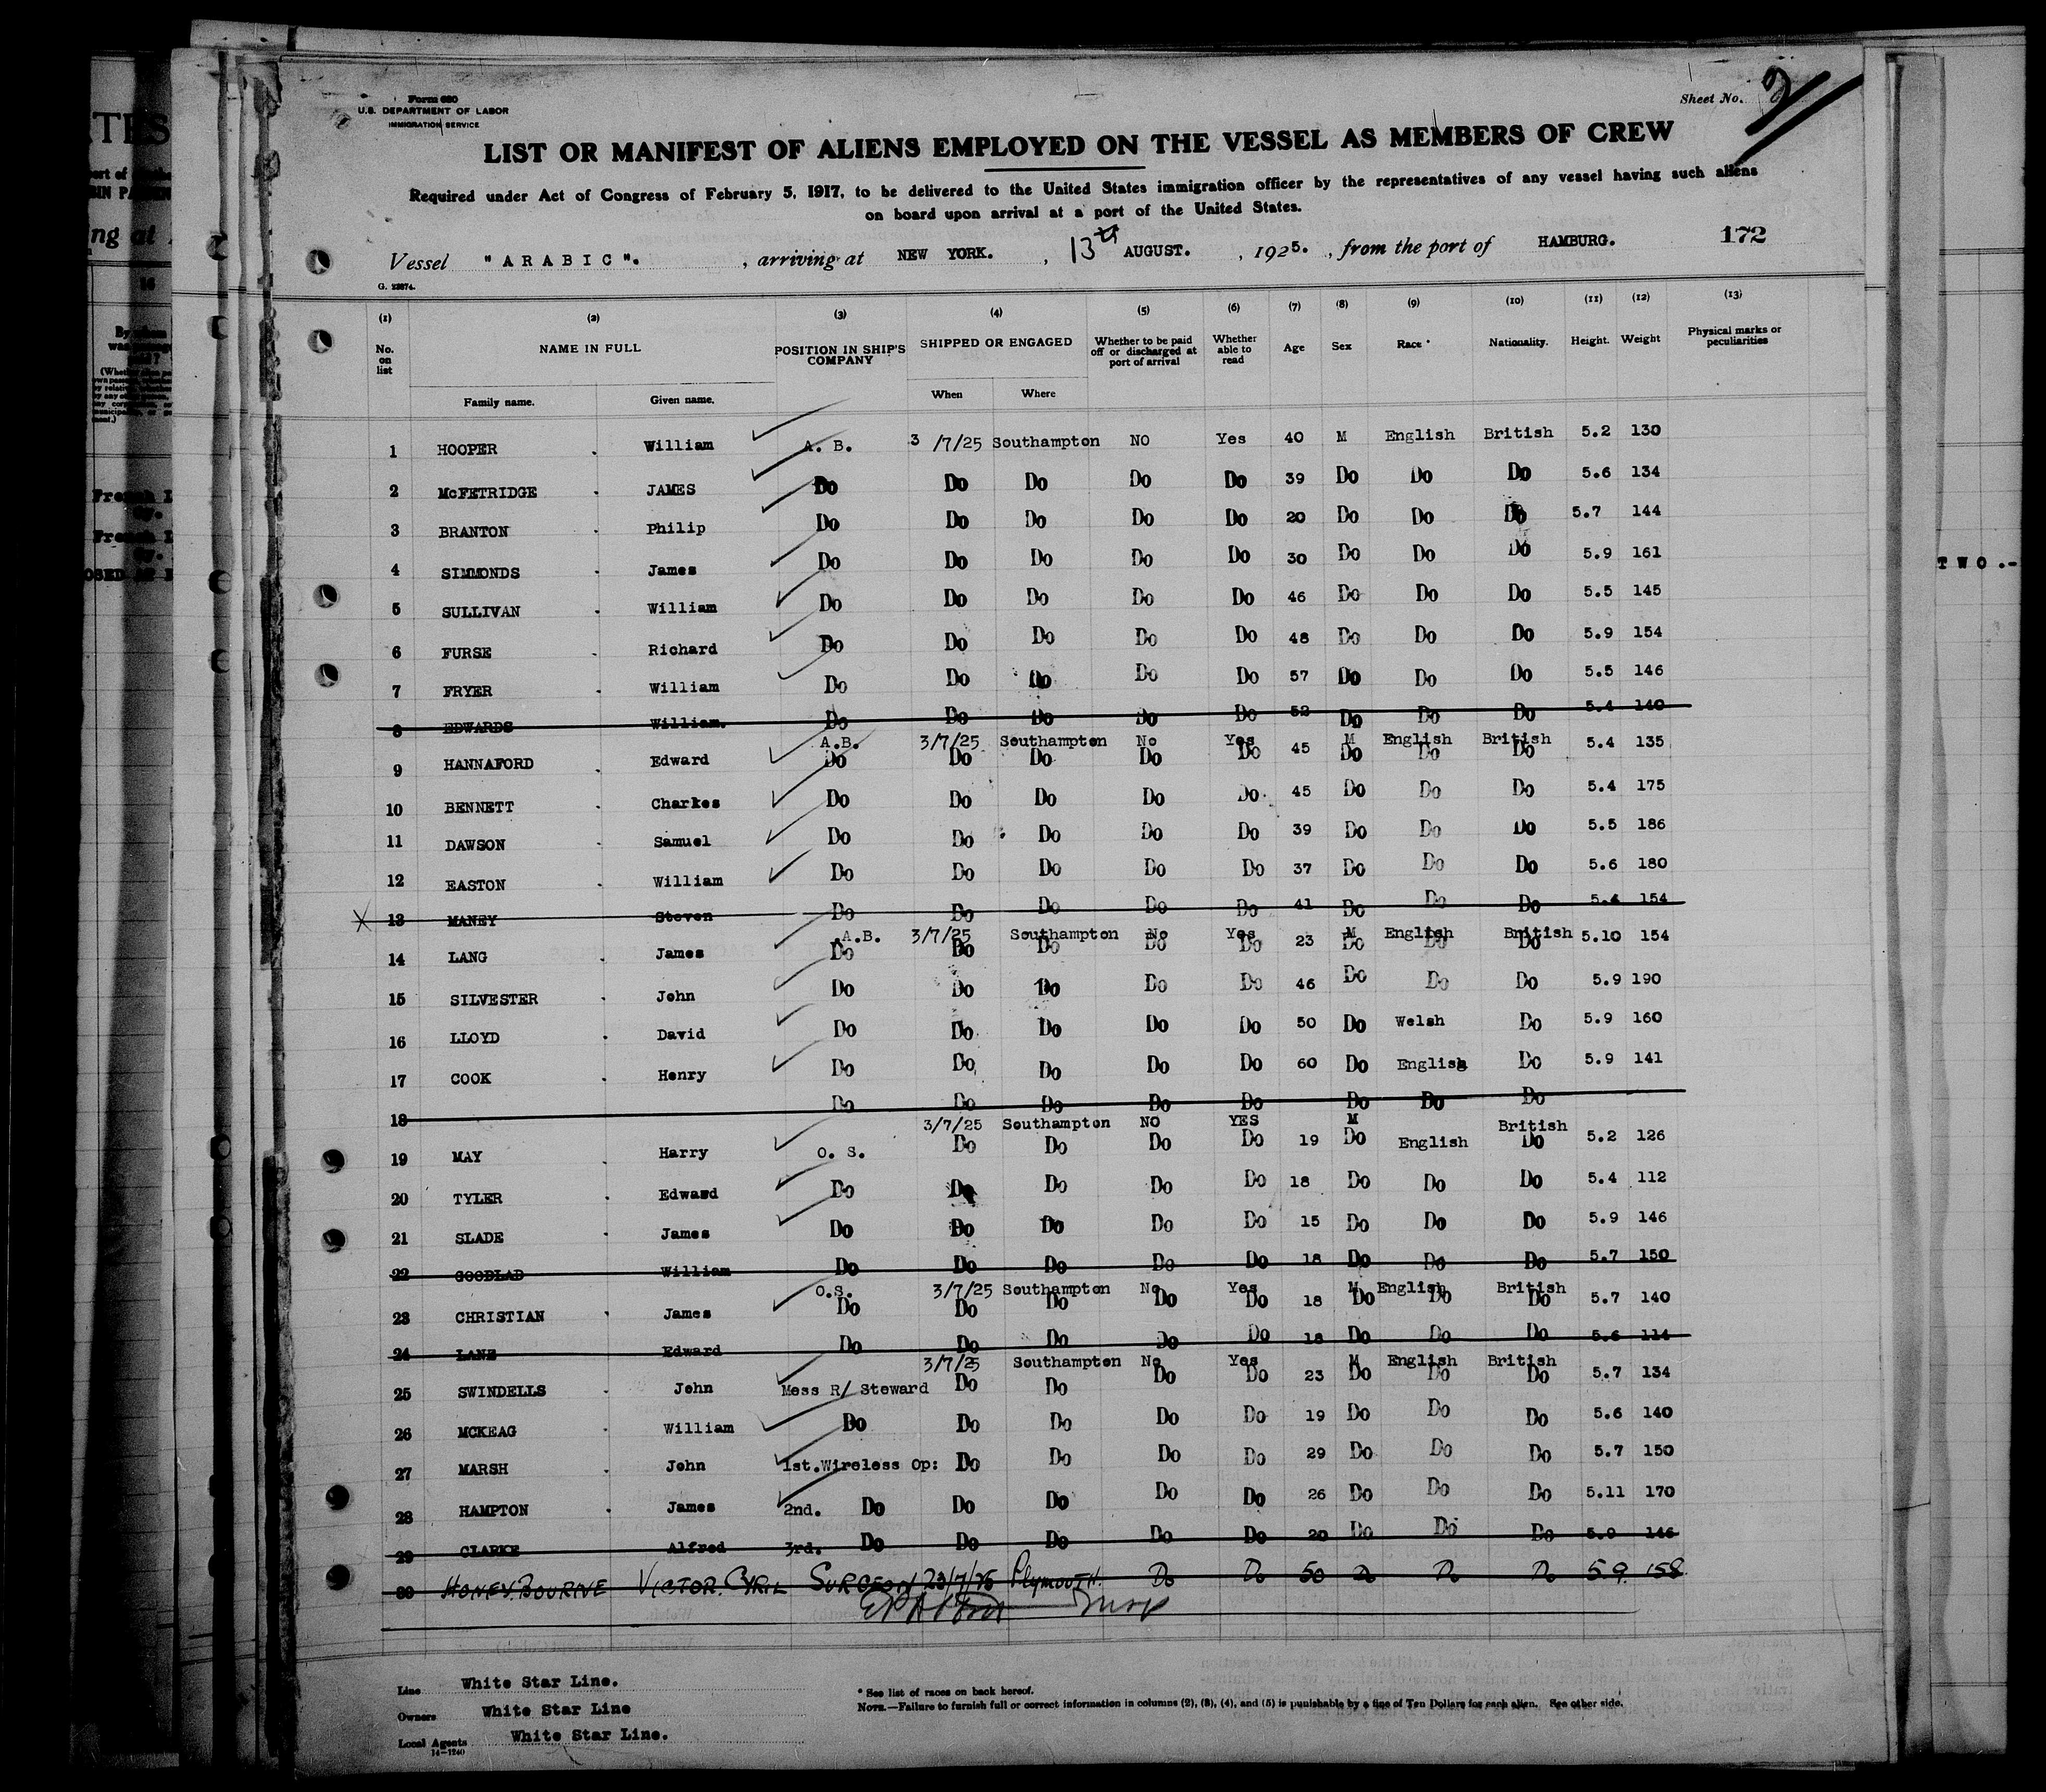 Form 680
U.S. DEPARTMENT OF LABOR
IMMIGRATION SERVICE
Sheet No. 2
LIST OR MANIFEST OF ALIENS EMPLOYED ON THE VESSEL AS MEMBERS OF CREW
Required under Act of Congress of February 5, 1917, to be delivered to the United States immigration officer by the representatives of any vessel having such aliens
on board upon arrival at a port of the United States.
Vessel "ARABIC". , arriving at NEW YORK. , 13th AUGUST. , 1925. , from the port of HAMBURG. 172
G. 23874.
(1) (2) (3) (4) (5) (6) (7) (8) (9) (10) (11) (12) (13)
No. on list NAME IN FULL POSITION IN SHIP'S COMPANY SHIPPED OR ENGAGED Whether to be paid off or discharged at port of arrival Whether able to read Age Sex Race * Nationality. Height. Weight Physical marks or peculiarities
Family name. Given name. When Where
1 HOOPER . William A. B. 3 /7/25 Southampton NO Yes 40 M English British 5.2 130
2 McFETRIDGE . JAMES Do Do Do Do Do 39 Do Do Do 5.6 134
3 BRANTON . Philip Do Do Do Do Do 20 Do Do Do 5.7 144
4 SIMMONDS . James Do Do Do Do Do 30 Do Do Do 5.9 161
5 SULLIVAN . William Do Do Do Do Do 46 Do Do Do 5.5 145
6 FURSE . Richard Do Do Do Do Do 48 Do Do Do 5.9 154
7 FRYER . William Do Do Do Do Do 57 Do Do Do 5.5 146
8 EDWARDS William. Do Do Do Do Do 52 Do Do Do 5.4 140
A.B. 3/7/25 Southampton No Yes M English British
9 HANNAFORD . Edward Do Do Do Do Do 45 Do Do Do 5.4 135
10 BENNETT . Charkes Do Do Do Do Do 45 Do Do Do 5.4 175
11 DAWSON . Samuel Do Do Do Do Do 39 Do Do Do 5.5 186
12 EASTON . William Do Do Do Do Do 37 Do Do Do 5.6 180
X 13 MANEY Steven Do Do Do Do Do 41 Do Do Do 5.4 154
A.B. 3/7/25 Southampton No Yes M English British
14 LANG . James Do Do Do Do Do 23 Do Do Do 5.10 154
15 SILVESTER . John Do Do Do Do Do 46 Do Do Do 5.9 190
16 LLOYD . David Do Do Do Do Do 50 Do Welsh Do 5.9 160
17 COOK . Henry Do Do Do Do Do 60 Do English Do 5.9 141
18 Do Do Do Do Do Do Do Do
3/7/25 Southampton NO YES M British
19 MAY . Harry O. S. Do Do Do Do 19 Do English Do 5.2 126
20 TYLER . Edward Do Do Do Do Do 18 Do Do Do 5.4 112
21 SLADE . James Do Do Do Do Do 15 Do Do Do 5.9 146
22 GOODLAD William Do Do Do Do Do 18 Do Do Do 5.7 150
O.S. 3/7/25 Southampton No Yes M English British
23 CHRISTIAN . James Do Do Do Do Do 18 Do Do Do 5.7 140
24 LANE Edward Do Do Do Do Do 18 Do Do Do 5.6 114
3/7/25 Southampton No Yes M English British
25 SWINDELLS . John Mess R/ Steward Do Do Do Do 23 Do Do Do 5.7 134
26 MCKEAG . William Do Do Do Do Do 19 Do Do Do 5.6 140
27 MARSH . John 1st.Wireless Op: Do Do Do Do 29 Do Do Do 5.7 150
28 HAMPTON . James 2nd. Do Do Do Do Do 26 Do Do Do 5.11 170
29 CLARKE Alfred 3rd. Do Do Do Do Do 20 Do Do Do 5.9 146
30 HONEYBOURNE VICTOR CYRIL SURGEON 23/7/25 PLYMOUTH. Do Do 50 Do Do Do 5.9. 158
Line White Star Line.
Owners White Star Line
Local Agents White Star Line.
14-1240
* See list of races on back hereof.
NOTE.—Failure to furnish full or correct information in columns (2), (3), (4), and (5) is punishable by a fine of Ten Dollars for each alien. See other side.
TWO.-